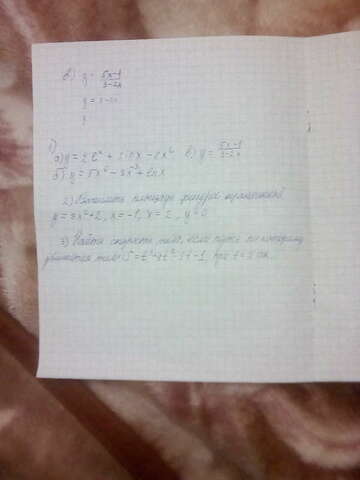 в) y = 5x-1/3-2x
y =
1)
а) y = 2e^x + x - 2x^6 в) y = 5x-1/3-2x
б) y = 5x^6 - 3x^-3 + ln x
2) Вычислить площадь фигуры ограниченной
y = 3x²+2, x = -1, x = 2, y = 0
3) Найти скорость тела, если путь по которому
движется тело S = t³+4t²-t-1, при t = сек